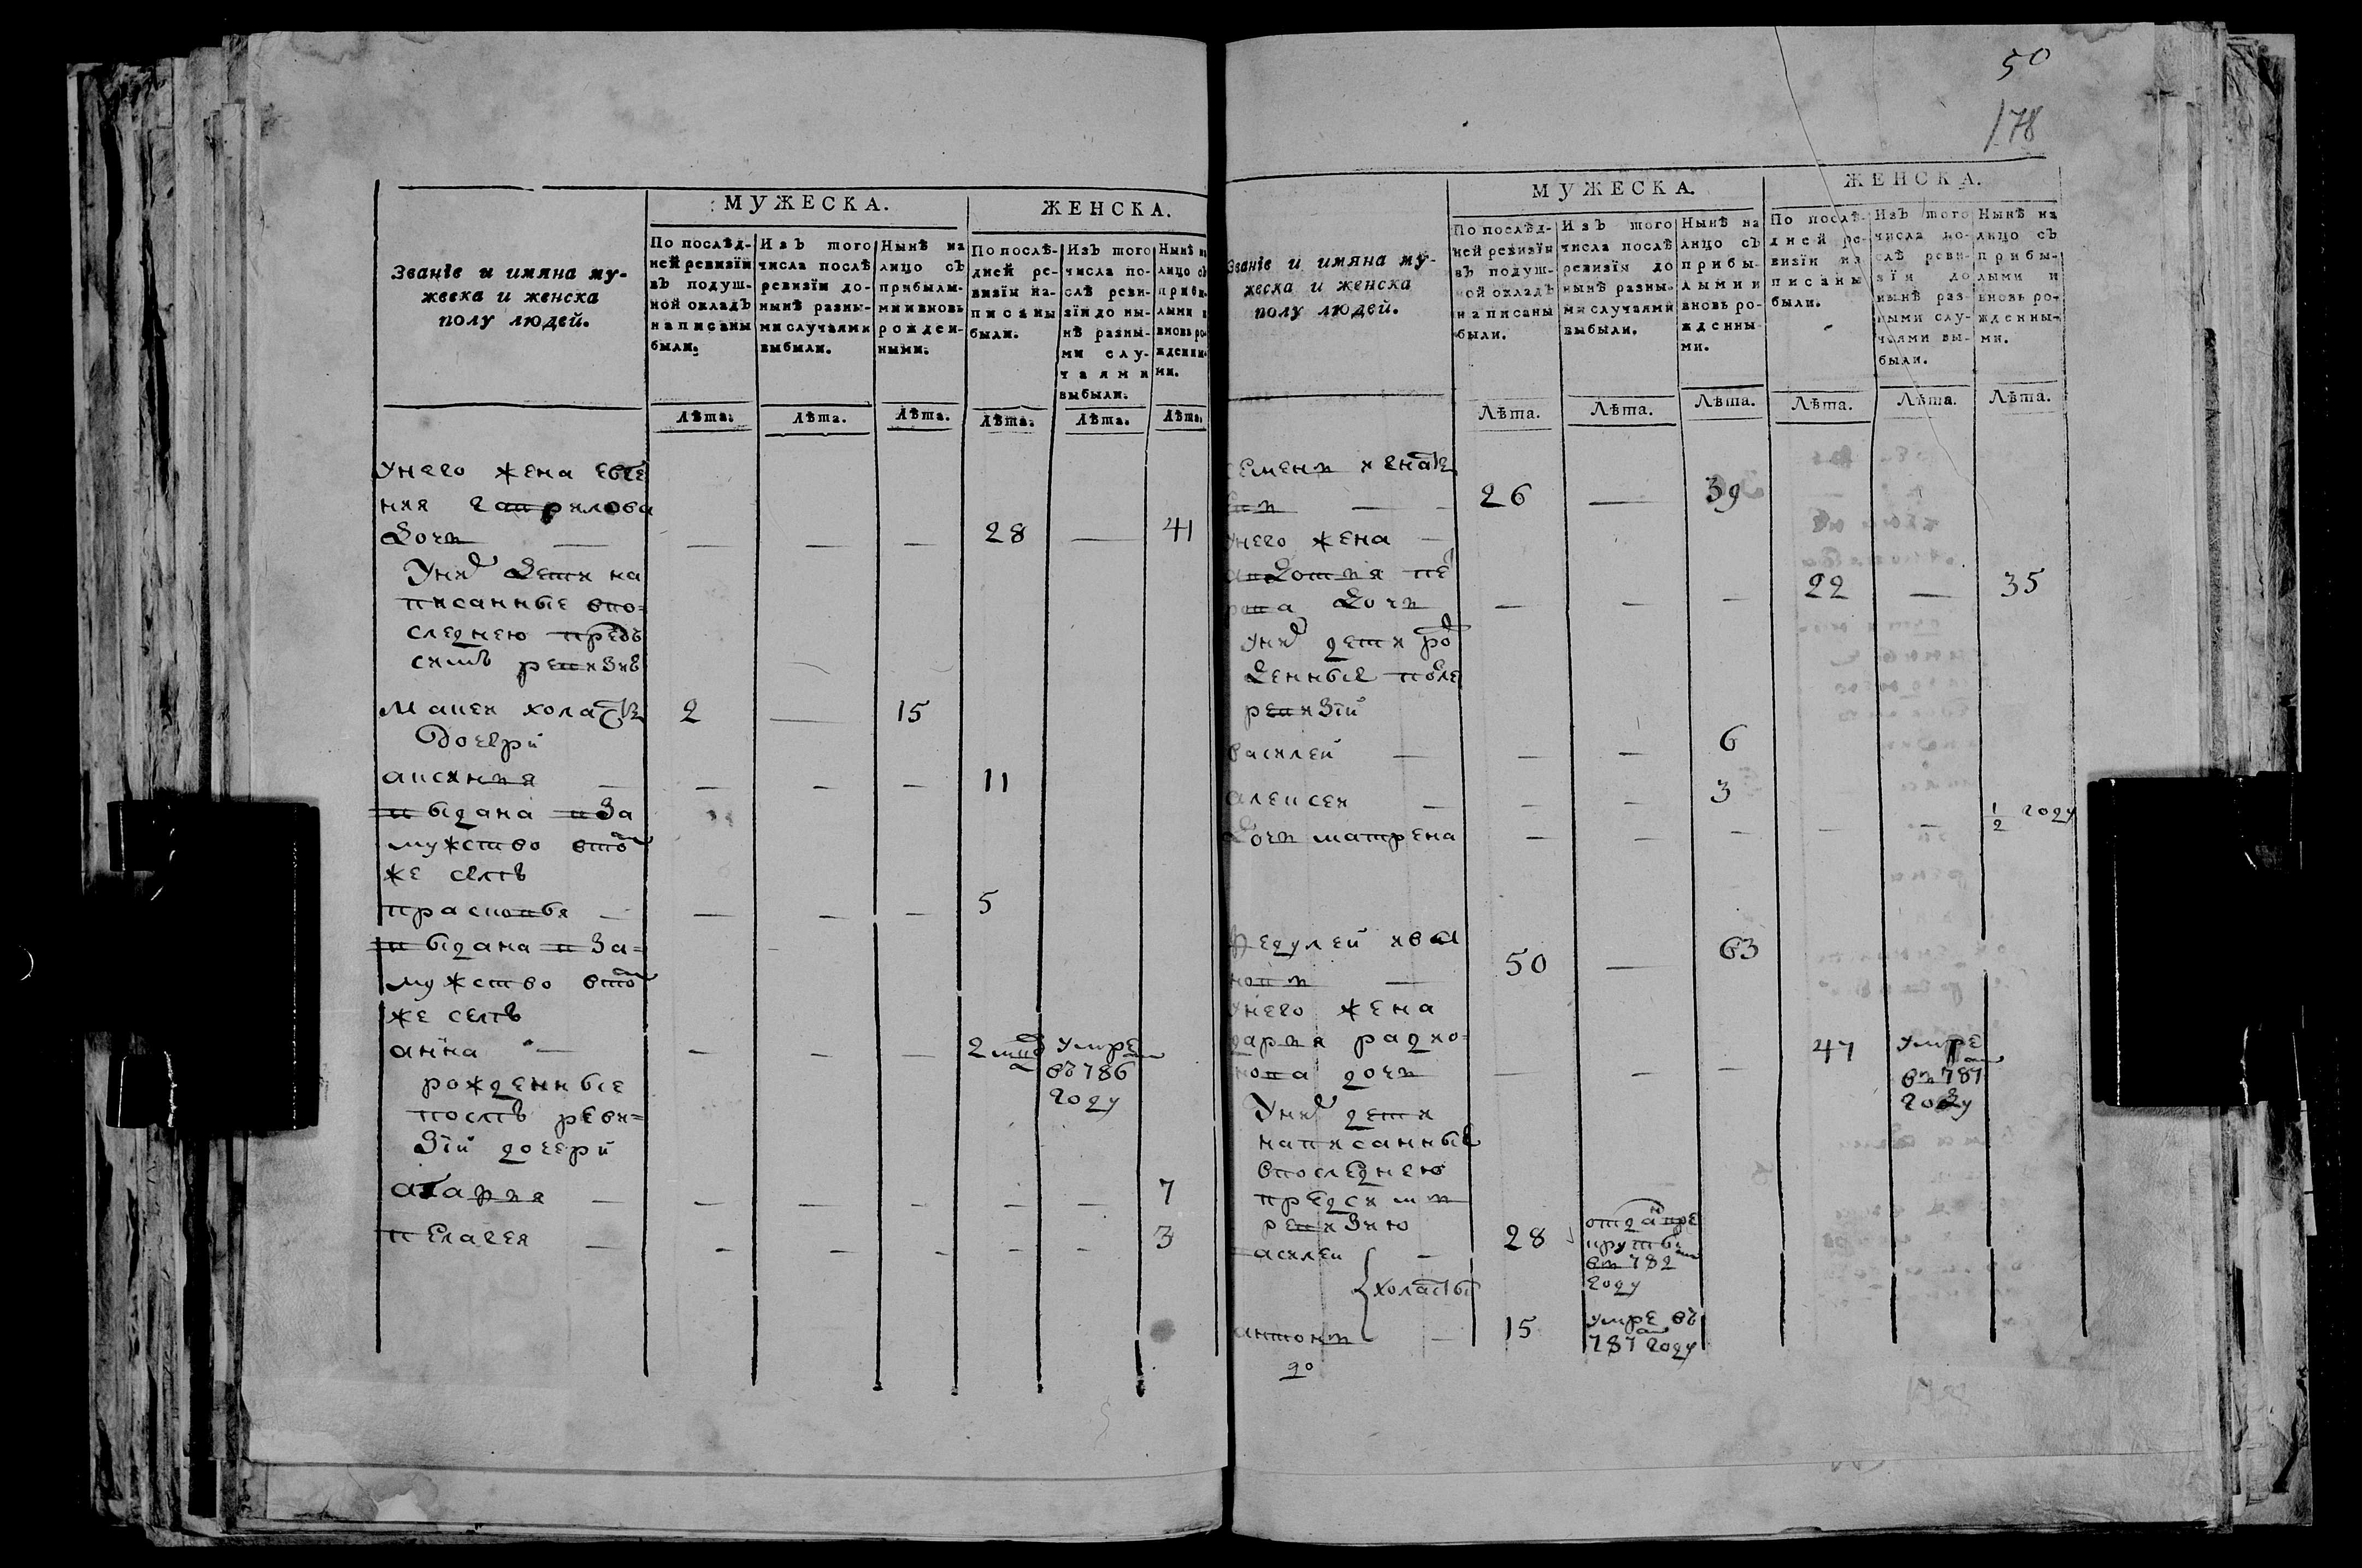 50
178
Званїе и имяна му-
жеска и женска
полу людей.
МУЖЕСКА.
По послѣд-
ней ревизїи
въ подуш-
ной окладъ
написаны
были.
Лѣта.
Изъ того
числа послѣ
ревизїи до-
нынѣ разны-
ми случаями
выбыли.
Лѣта.
Нынѣ на
лицо съ
прибылы-
ми и вновь
рожден-
ными.
Лѣта.
ЖЕНСКА.
По послѣ-
дней ре-
визїи на-
писаны
были.
Лѣта.
Изъ того
числа по-
слѣ реви-
зїи до ны-
нѣ разны-
ми слу-
чаями
выбыли.
Лѣта.
Нынѣ на
лицо съ
прибы-
лыми и
вновь ро-
жденны-
ми.
Лѣта.
у него жена евге
ния гаврилова
дочь — — — — 28 — 41
У них дети на
писанные впо=
следнею предъ
симъ ревизиѣ
2 — 15
дочери
аксинья — — — — 11
выдана вза
мужство втой
же селѣ
прасковья — — — — 5
выдана вза=
мужство втой
же селѣ
анна — — — — 2 умре
въ 786
году
рожденные
послѣ реви=
зїи дочери
— — — — — — 7
пелагея — — — — — — 3
Званїе и имяна му-
жеска и женска
полу людей.
МУЖЕСКА.
По послѣд-
ней ревизїи
въ подуш-
ной окладъ
написаны
были.
Лѣта.
Изъ того
числа послѣ
ревизїи до
нынѣ разны-
ми случаями
выбыли.
Лѣта.
Нынѣ на
лицо съ
прибы-
лыми и
вновь ро-
жденны-
ми.
Лѣта.
ЖЕНСКА.
По послѣ-
дней ре-
визїи на
писаны
были.
Лѣта.
Изъ того
числа по-
слѣ реви-
зїи до
нынѣ раз-
ными слу-
чаями вы-
были.
Лѣта.
Нынѣ на
лицо съ
прибы-
лыми и
вновь ро-
жденны-
ми.
Лѣта.
семенъ игнать
евъ — 26 — 39
у него жена —
авдотья пе
рова дочь — — — 22 — 35
у них дети рож
денные после
ревизїи
василей — — — 6
алексей — — — 3
дочь матрена — — — — — 1/2 году
федулей ива
новъ — 50 — 63
у него жена
дарья радио=
нова дочь — — — 47 умре
въ 787
году
У них дети
написанные
впоследнею
предсимъ
ревизию
василей — 28 отдан вре
круты
въ 782
году
холосты
антонъ — 15 умре въ
787 году
до